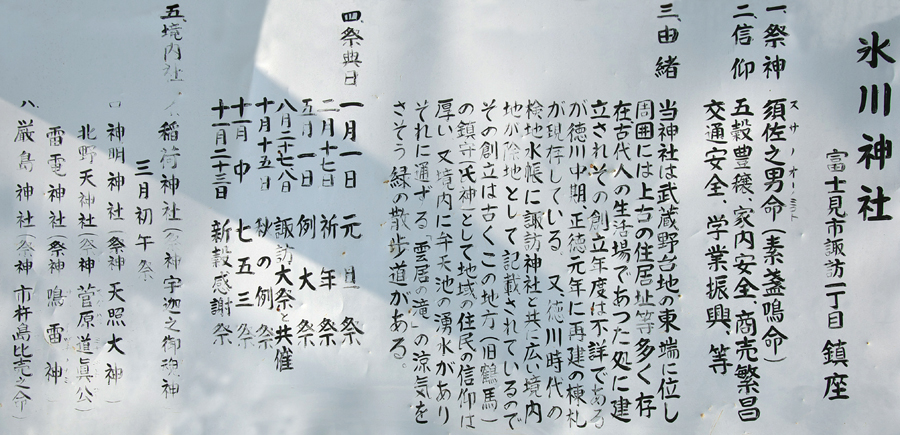 氷川神社
富士見市諏訪一丁目 鎮座
一、祭神 須佐之男命(素盞鳴命)
スサノオーミコト
二、信仰 五穀豊穣、家内安全、商売繁昌
交通安全、学業振興、等
三、由緒 当神社は武蔵野台地の東端に位し
周囲には上古の住居址等多く存
在古代人の生活場であつた処に建
立されその創立年度は不詳である
が徳川中期、正徳元年に再建の棟札
が現存している。又徳川時代の
検地水帳に諏訪神社と共に広い境内
地が除地として記載されているので
その創立は古くこの地方(旧鶴馬)
の鎮守(氏神)として地域の住民の信仰は
厚い。又境内に弁天池の湧水があり
それに通ずる「雲居の滝」の涼気を
さそう緑の散歩道がある。
四、祭典日 一月一日 元旦祭
二月十七日 祈年祭
五月一日 例大祭
八月二十七、八日 諏訪大祭と共催
十月十五日 秋の例祭
十一月中 七五三祭
十一月二十三日 新穀感謝祭
五、境内社 イ、稲荷神社(祭神 宇迦之御魂神
三月初午祭
ロ、神明神社(祭神 天照大神)
北野天神社(祭神 菅原道真公)
雷電神社(祭神 鳴雷神)
ハ、厳島神社(祭神 市杵島比売之命)